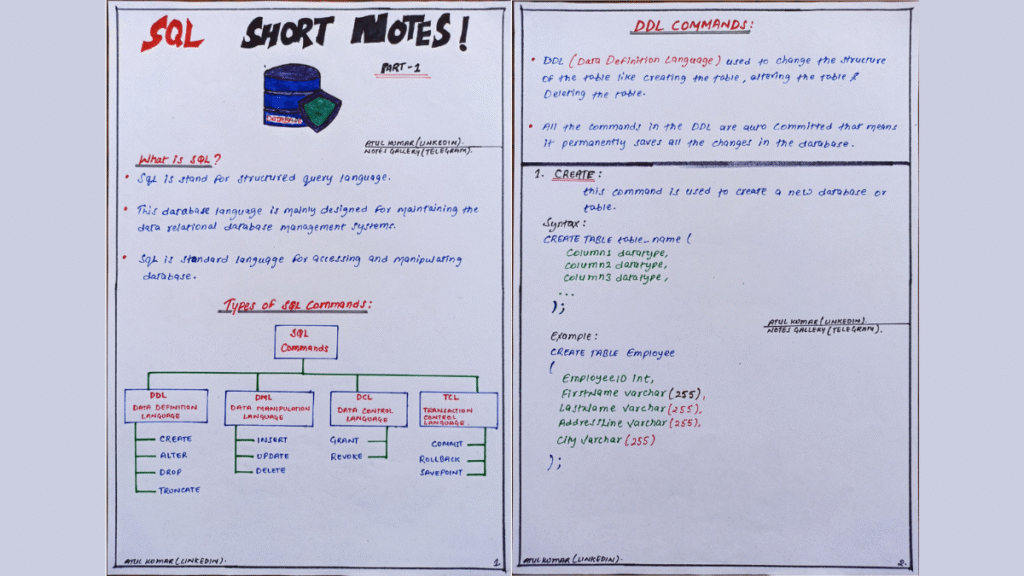 SQL SHORT NOTES!
PART-1
DATABASE
ATUL KUMAR (LINKEDIN).
NOTES GALLERY (TELEGRAM).
What is SQL?
• SQL is stand for structured query language.
• This database language is mainly designed for maintaining the
data relational database management systems.
• SQL is standard language for accessing and manipulating
database.
Types of SQL Commands:
SQL
Commands
DDL
DATA DEFINITION
LANGUAGE
CREATE
ALTER
DROP
TRUNCATE
DML
DATA MANIPULATION
LANGUAGE
INSERT
UPDATE
DELETE
DCL
DATA CONTROL
LANGUAGE
GRANT
REVOKE
TCL
TRANZACTION
CONTROL
LANGUAGE.
COMMIT
ROLLBACK
SAVEPOINT
ATUL KUMAR (LINKEDIN).
1.
DDL COMMANDS:
• DDL (Data Definition Language) used to change the structure
of the table like creating the table, altering the table &
Deleting the table.
• All the commands in the DDL are auto committed that means
it permanently saves all the changes in the database.
1. CREATE:
this command is used to create a new database or
table.
Syntax:
CREATE TABLE table_name (
Column1 datatype,
Column2 datatype,
Column3 datatype,
...
);
ATUL KUMAR (LINKEDIN).
NOTES GALLERY (TELEGRAM).
Example:
CREATE TABLE Employee
(
EmployeeID Int,
FirstName varchar (255),
LastName varchar (255),
AddressLine varchar (255),
City varchar (255)
);
ATUL KUMAR (LINKEDIN).
2.